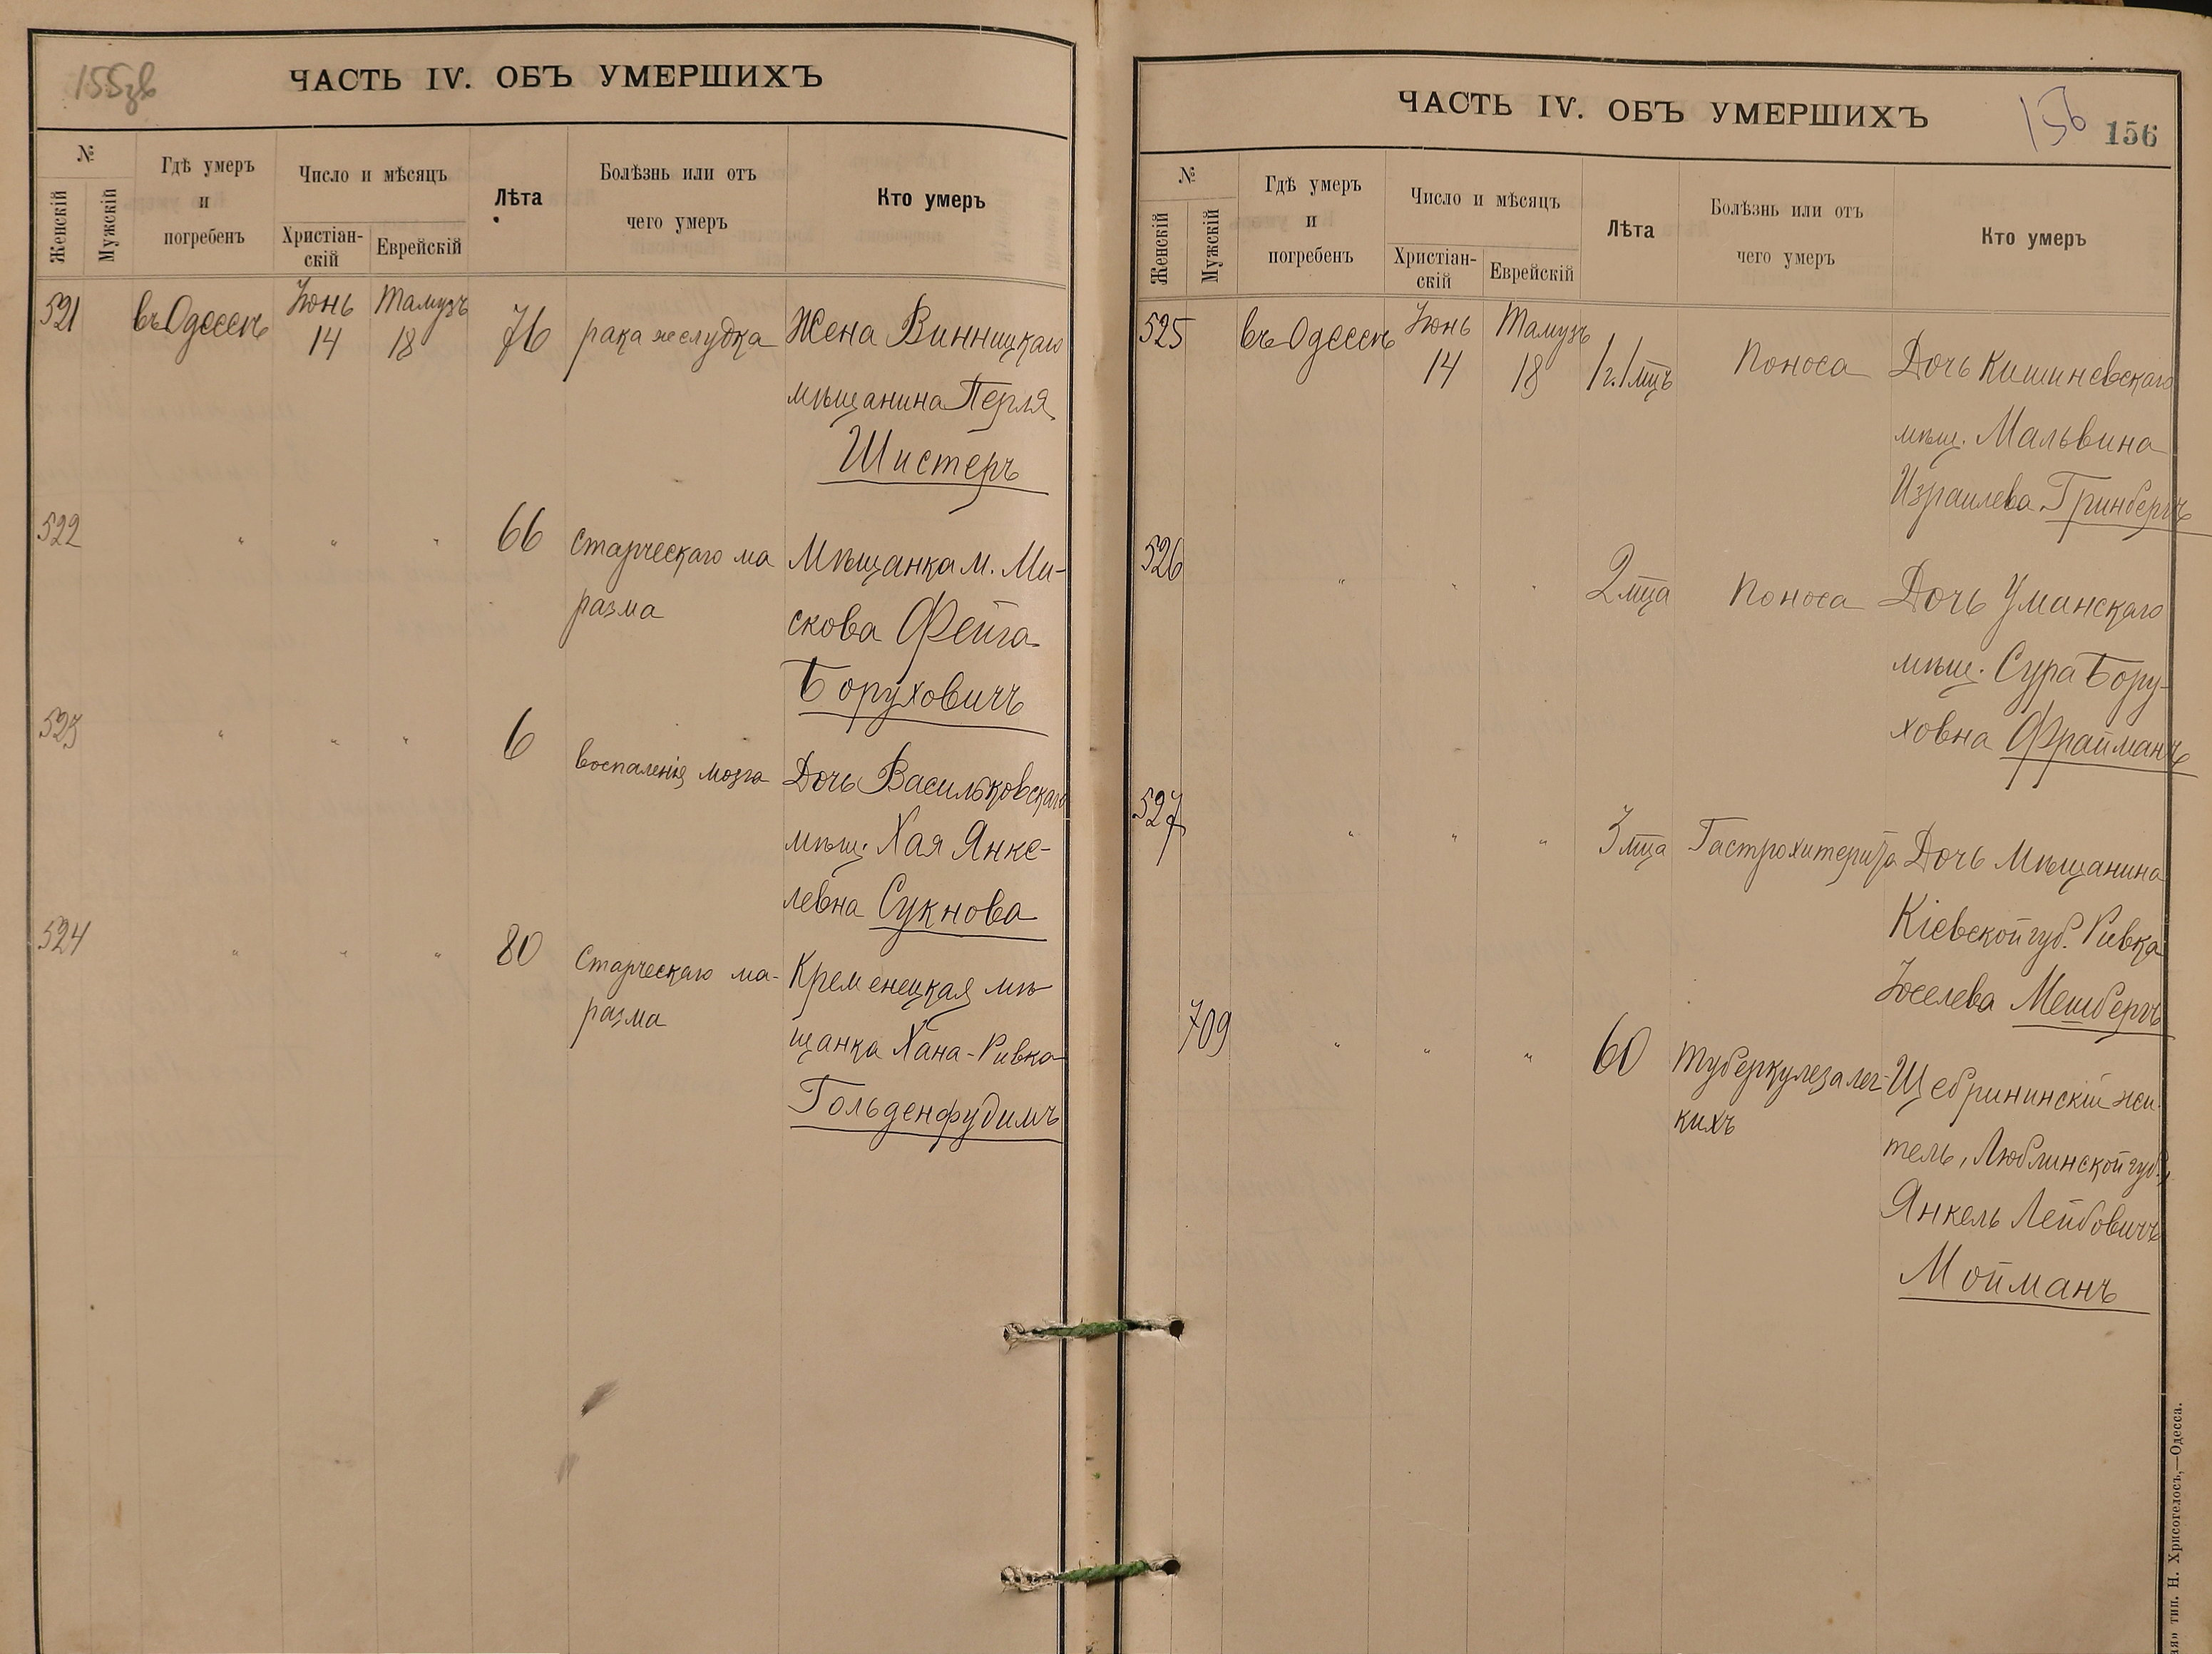 155зв
ЧАСТЬ IV. ОБЪ УМЕРШИХЪ
№
Женскій
Мужскій
Гдѣ умеръ
и
погребенъ
Число и мѣсяцъ
Христіан-
скій
Еврейскій
Лѣта
Болѣзнь или отъ
чего умеръ
Кто умеръ
521 въ Одессѣ Іюнь 14 Тамузъ 18 76 рака желудка Жена Винницкаго
мѣщанина Перля
Шистеръ
522 " " " 66 старческаго ма Мѣщанка м. Ми-
разма скова Фейга
Боруховичъ
523 " " " 6 воспаленія мозга Дочь Васильковскаго
мѣщ. Хая Янке-
левна Сукнова
524 " " " 80 Старческаго ма- Кременецкая мѣ
разма щанка Хана-Ривка
Гольденфудимъ
ЧАСТЬ IV. ОБЪ УМЕРШИХЪ
156 156
№
Женскій
Мужскій
Гдѣ умеръ
и
погребенъ
Число и мѣсяцъ
Христіан-
скій
Еврейскій
Лѣта
Болѣзнь или отъ
чего умеръ
Кто умеръ
525 въ Одессѣ Іюнь 14 Тамузъ 18 1 г. 1 мцъ Поноса Дочь Кишиневскаго
мѣщ. Мальвина
Израилева Гринбергъ
526 " " " 2 мца Поноса Дочь Уманскаго
мѣщ. Сура Бору-
ховна Фрайманъ
527 " " " 3 мца Дочь Мѣщанина
Кіевской губ. Ривка
Іоселева Мешбергъ
709 " " " 60 Туберкулеза лег- Щебрининскій жи-
кихъ тель, Люблинской губ.,
Янкель Лейбовичъ
Мойманъ
тип. Н. Хрисогелосъ,—Одесса.